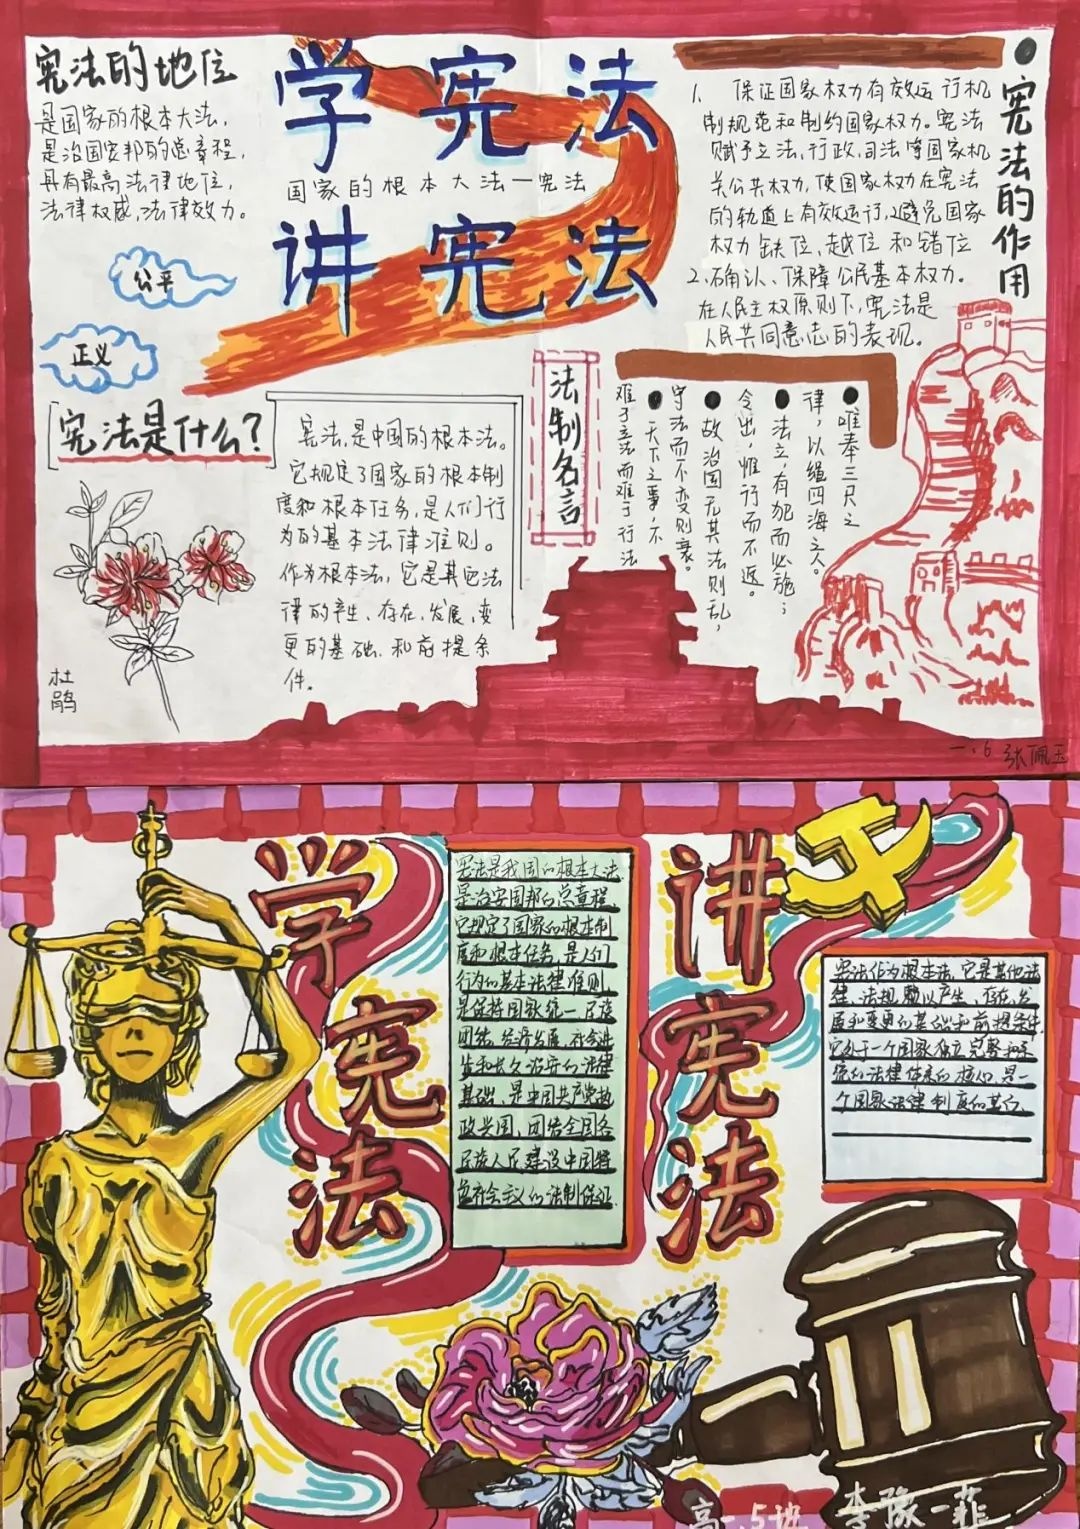 宪法的地位
是国家的根本大法,
是治国安邦的总章程,
具有最高法律地位,
法律权威,法律效力。
公平
正义
学宪法
国家的根本大法—宪法
讲宪法
宪法的作用
1. 保证国家权力有效运行机
制规范和制约国家权力。宪法
赋予立法,行政,司法等国家机
关公共权力,使国家权力在宪法
的轨道上有效运行,避免国家
权力缺位、越位和错位
2.确认、保障公民基本权力。
在人民主权原则下,宪法是
人民共同意志的表现。
宪法是什么?
宪法,是中国的根本法。
它规定了国家的根本制
度和根本任务,是人们行
为的基本法律准则。
作为根本法,它是其它法
律的产生、存在、发展、变
更的基础、和前提条
件。
杜鹃
法制名言
唯奉三尺之
律,以绳四海之人。
法立,有犯而必施;
令出,惟行而不返。
故治国无其法则乱,
守法而不变则衰。
天下之事,不
难于立法而难于行法
一.6 张佩玉
学宪法
宪法是我国的根本大法
是治安国邦的总章程
它规定了国家的根本制
度和根本任务,是人们
行为的基本法律准则,
是保持国家统一民族
团结,经济发展,社会进
步和长久治安的法律
基础,是中国共产党执
政兴国,团结全国各
民族人民建设中国特
色社会主义的法制保证.
讲宪法
宪法作为根本法,它是其他法
律、法规赖以产生、存在、发
展和变更的基础和前提条件.
它处于一个国家独立完整和系
统的法律体系的核心,是一
个国家法律制度的基石
高一.5班 李豫一菲